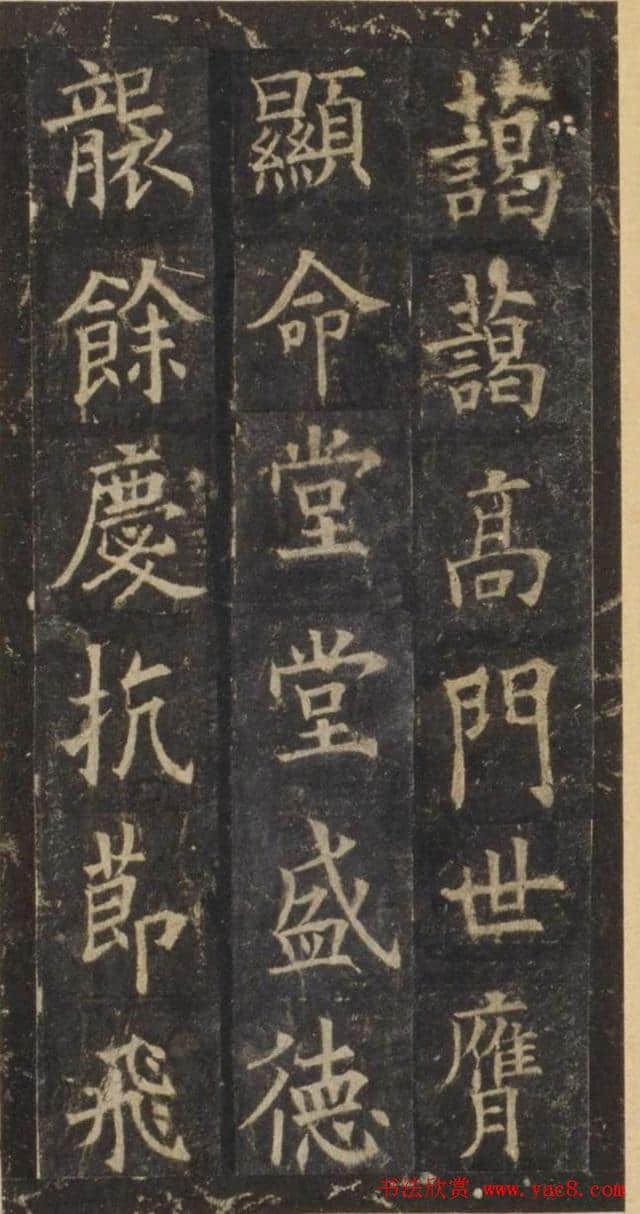 藹藹高門世膺
顯命堂堂盛德
襲餘慶抗節飛
书法欣赏 www.yac8.com